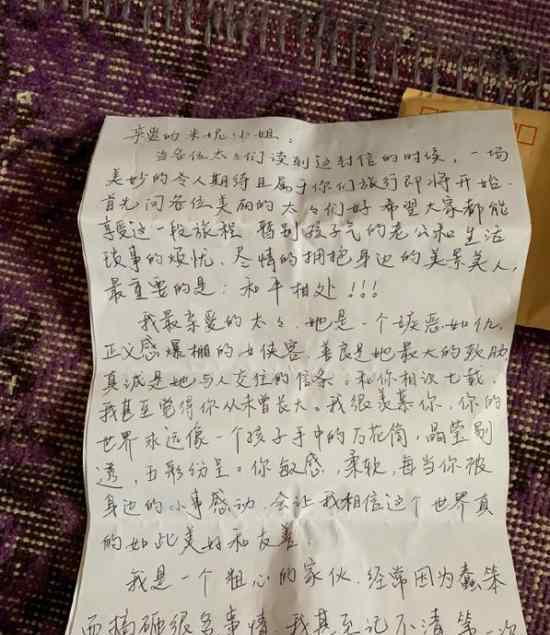 亲爱的米忱小姐：
当各位太太们读到这封信的时候，一场
美妙的令人期待且属于你们旅行即将开始.
首先问各位美丽的太太们好 希望大家都能
享受这一段旅程 暂别孩子气的老公和生活
琐事的烦忧，尽情的拥抱身边的美景美人，
最重要的是：和平相处！！！
我最亲爱的太太，她是一个嫉恶如仇，
正义感爆棚的女侠客，善良是她最大的软肋
真诚是她与人交往的信条。和你相识七载，
我甚至觉得你从未曾长大。我很羡慕你，你的
世界永远像一个孩子手中的万花筒，晶莹剔
透，五彩纷呈。你敏感，柔软，每当你被
身边的小事感动，会让我相信这个世界真
的如此美好和友善！
我是一个粗心的家伙，经常因为蠢笨
而搞砸很多事情，我甚至记不清第一次